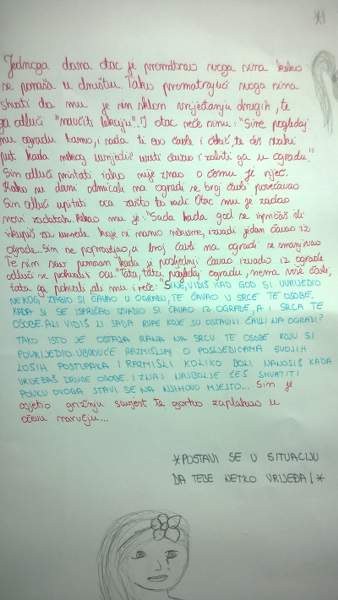 Jednoga dana otac je promatrao svoga sina kako
se ponaša u društvu. Tako promatrajući svoga sina
shvati da mu je sin sklon vrijeđanju drugih, te
ga odluči "naučiti lekciju". I otac reče sinu: "Sine pogledaj
mu ogradu tamo, i sada ti evo čavle i čekić, te ćeš svaki
put kada nekog uvrijediš uzeti čavao i zabiti ga u ogradu."
Sin odluči pristati iako nije znao o čemu je riječ.
Kako su dani odmicali na ogradi se broj čavli povećavao
Sin odluči upitati oca zašto to radi. Otac mu je zadao
novi zadatak. Rekao mu je: "Sada kada god se ispričaš ili
uvrede koje si nanio nekome, izvadi jedan čavao iz
ograde. Sin se popravljao, a broj čavli na ogradi se smanjivao
Te sin sav ponosan kada je posljednji čavao izvadio iz ograde
odluči se pohvaliti ocu. "Tata, tata, pogledaj ogradu, nema više čavle,
tata ga pohvali, ali mu i reče: "SINE, VIDIŠ KAD GOD SI UVRIJEDIO
NEKOG, ZABIO SI ČAVAO U OGRADU, TE ČAVAO U SRCE TE OSOBE,
KADA SI SE ISPRIČAO IZVADIO SI ČAVAO IZ OGRADE, A I SRCA TE
OSOBE. ALI VIDIŠ LI SADA RUPE KOJE SU OSTAVILI ČAVLI NA OGRADI?
TAKO ISTO SE OSTAJA RANA NA SRCU TE OSOBE KOJU SI
POVRIJEDIO. UBUDUĆE RAZMIŠLJAJ O POSLJEDICAMA SVOJIH
LOŠIH POSTUPAKA I RAZMISLI KOLIKO BOLI NANOSIŠ KADA
VRIJEĐAŠ DRUGE OSOBE. I ZNAJ NAJBOLJE ĆEŠ SHVATITI
POUKU OVOGA STAVI SE NA NJIHOVO MJESTO... Sin je
osjetio grižnju savjest te gorko zaplakao u
očevu naručju...
*POSTAVI SE U SITUACIJU
DA TEBE NETKO VRIJEĐA!*